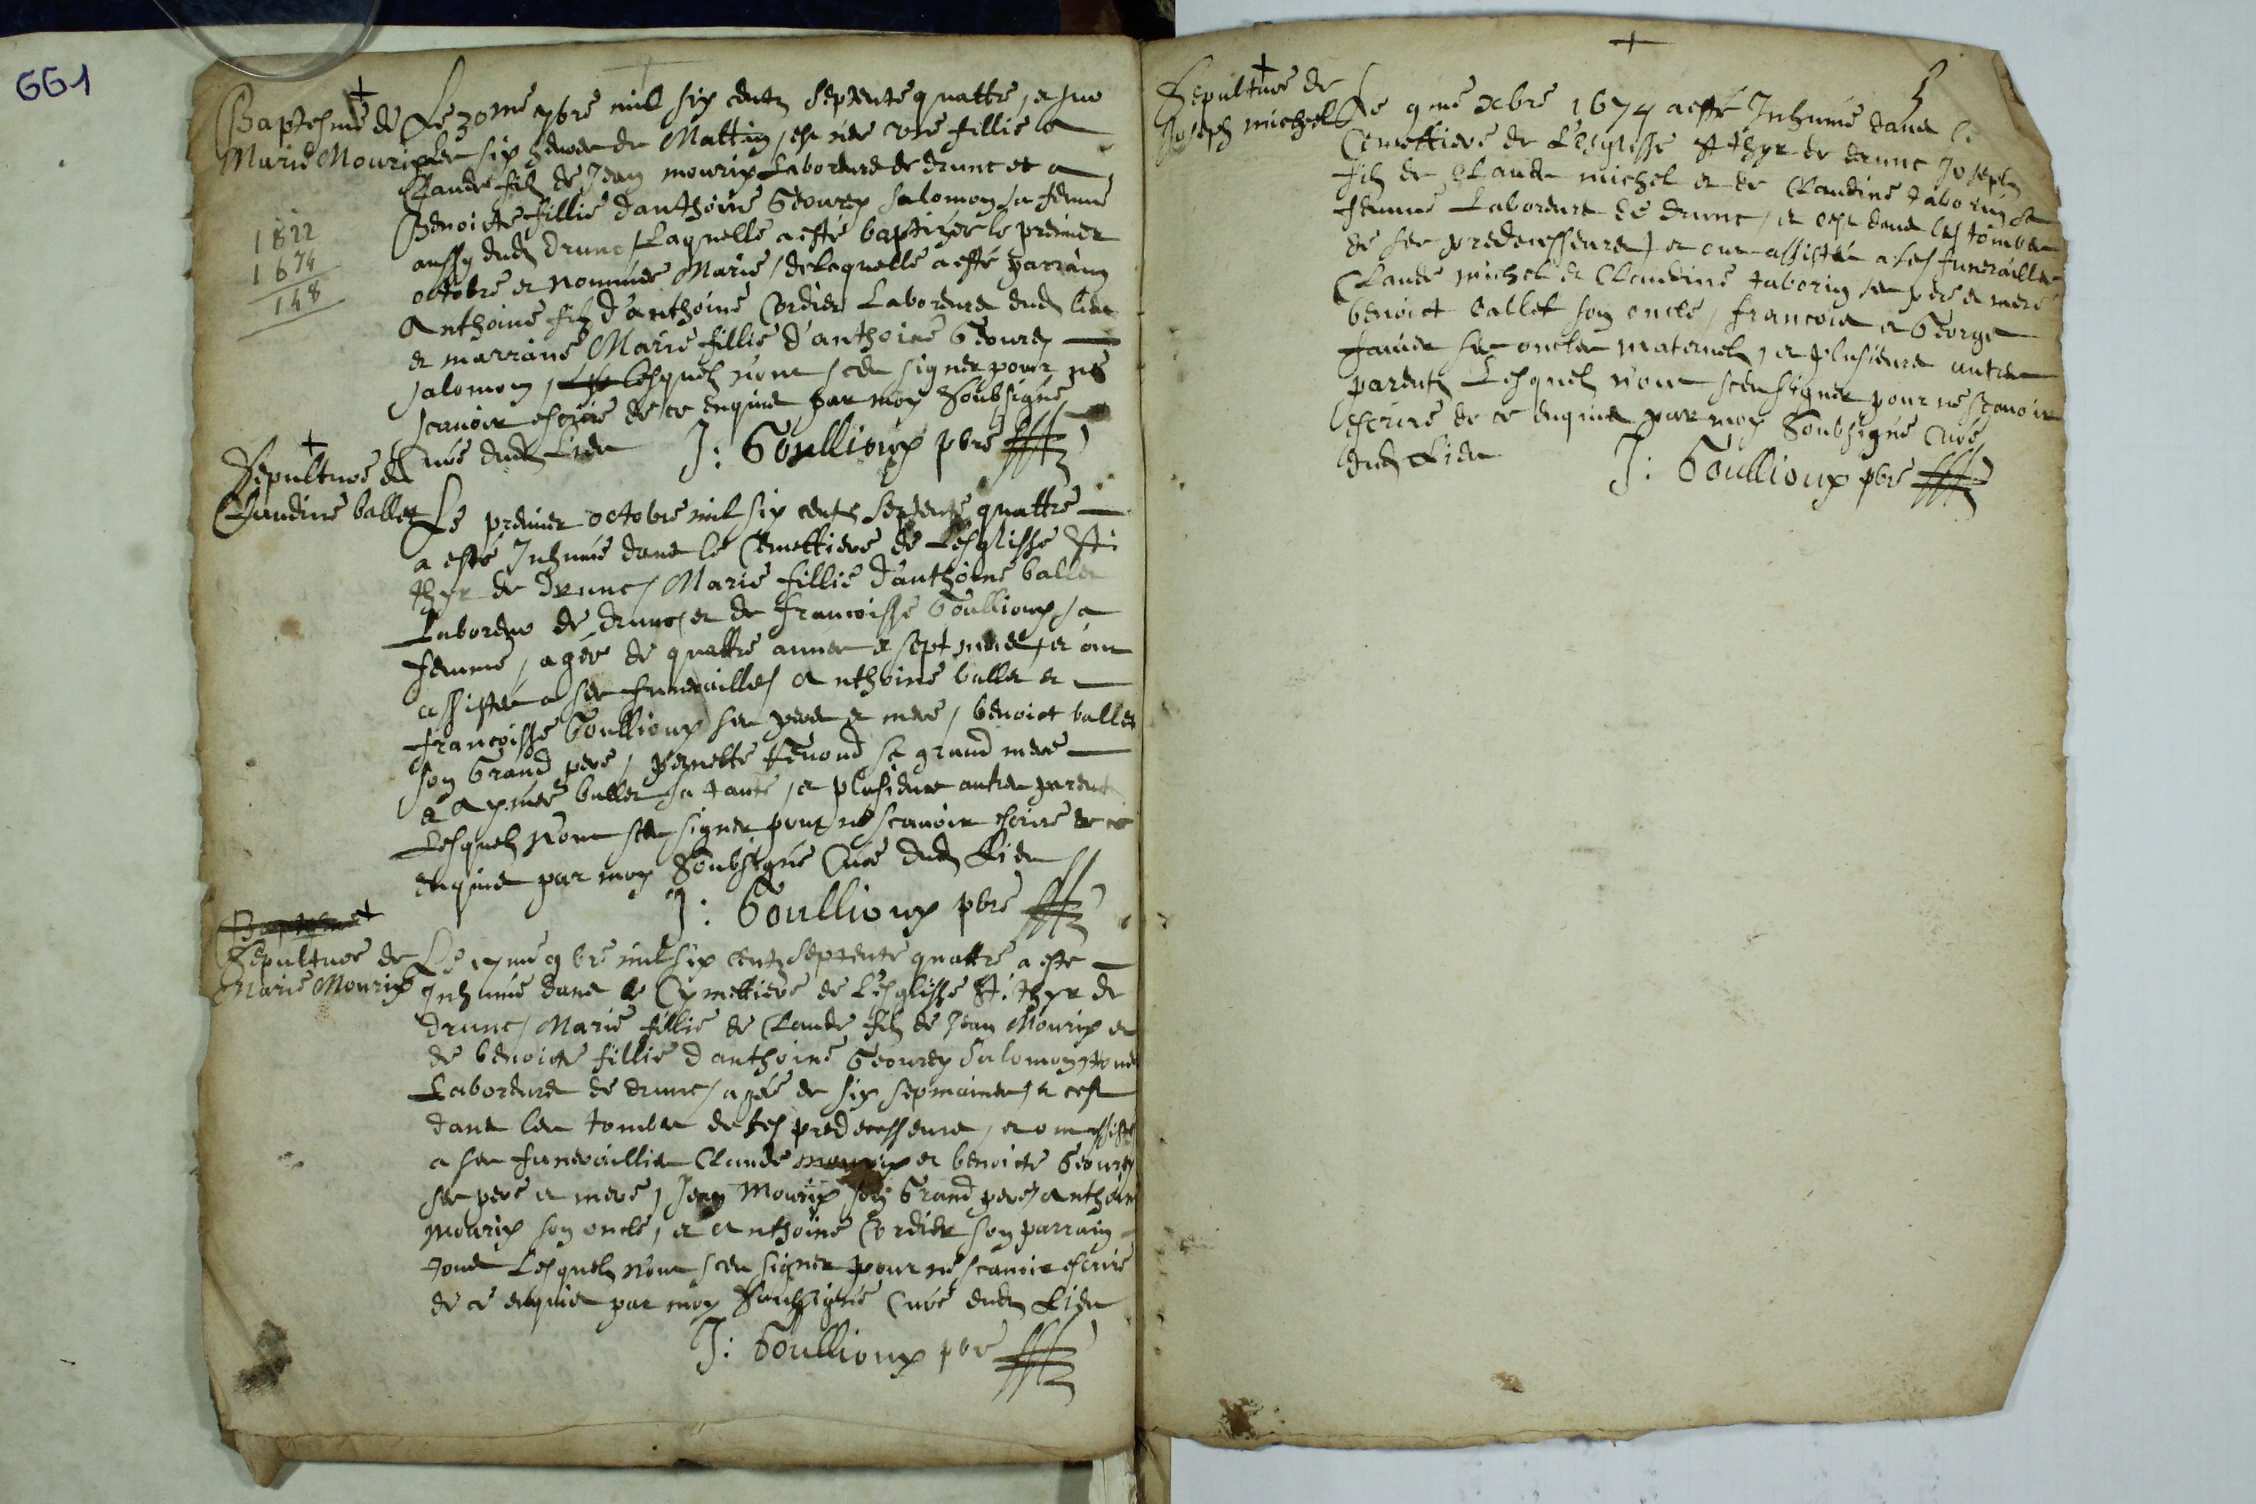 661
Baptesme de
Marie Mourix
1822
1674
148
Le 30me 7bre mil six centz septente quattre, et sur
les six heures de Mattin, est née une fillie a
Claude filz de Jean mourix Laboreur de drunc et a
Benoicte fillie d'anthoine Geourey Salomon sa femme
aussy dudt Drunc, Laquelle a esté baptizée le premier
octobre et nommée Marie, de laquelle a esté parraing
Anthoine filz d'anthoine Cordier Laboreur dudt lieu
et marraine Marie fillie d'anthoine Geourey
Salomon, lesquelz n'ont sceu signer pour ne
scavoir escrire de ce enquis par moy Soubsigné
Curé dudt Lieu J: Goullioux pbre
Sepulture de
Claudine ballet
Le premier octobre mil six centz septente quattre
a esté Inhumé dans le Cemettiere de L'esglisse St:
thyr de Drunc, Marie fillie d'anthoine ballet
Laboreur de drunc, et de francoisse Goullioux sa
femme, agée de quattre annes et sept mois, et ont
assistés a ses funerailles Anthoine ballet et
francoisse Goullioux ses pere et mere, benoict ballet
son Grand pere, pernette sa grand mere
et Aymée ballet sa tante, et plusieurs autres parentz
Lesquelz n'ont sceu signer pour ne scavoir escrire de ce
enquis par moy Soubsigné Curé dudt Lieu
J: Goullioux pbre
Baptesme
Sepulture de
Marie Mourix
Le 17me 9bre mil six centz septente quattre a esté
Inhumé dans le Cymettiere de L'esglisse St. thyr de
drunc, Marie fillie de Claude filz de Jean Mourix et
de benoicte fillie d'anthoine Geourey Salomon, tous
Laboreurs de drunc, agée de six sepmaines, et cest
dans les tombes de ses predecesseurs, et ont assistés
a ses funeraillies Claude mourix et benoicte Geourey
ses pere et mere, Jean Mourix son Grand pere, Anthoine
mourix son oncle, et Anthoine Cordier son parraing
tous Lesquelz n'ont sceu signer pour ne scavoir escrire
de ce enquis par moy Soubsigné Curé dudt Lieu
J: Goullioux pbre
Sepulture de
Joseph michel
Le 9me xbre 1674 a esté Inhumé dans le
Cemettiere de L'esglisse St thyr de drunc Joseph
filz de Claude michel et de Claudine taborin sa
femme Laboreurs de drunc, et cest dans les tombes
de ses predecesseurs, et ont assistés a ses funerailles
Claude michel et Claudine taborin ses pere et mere
benoict ballet son oncle, francois et George
ses oncles maternelz, et plusieurs autres
parentz Lesquelz n'ont sceu signer pour ne scavoir
escrire de ce enquis par moy Soubsigné Curé
dudt Lieu J: Goullioux pbre